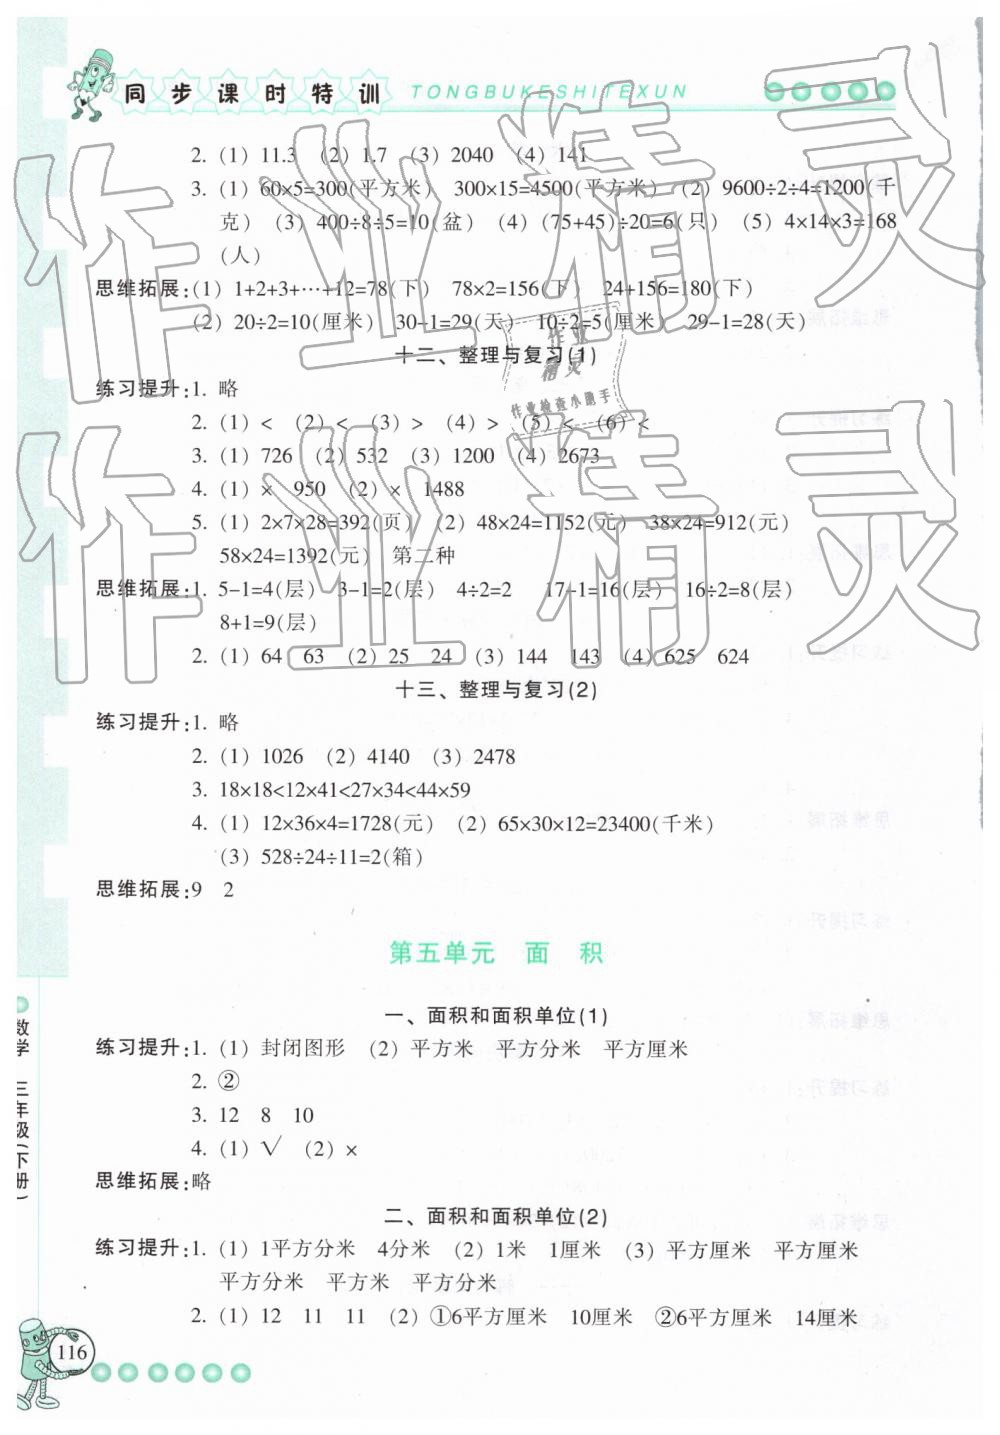 同步课时特训 TONGBUKESHITEXUN
2. (1) 11.3 (2) 1.7 (3) 2040 (4) 141
3. (1) 60×5=300(平方米) 300×15=4500(平方米) (2) 9600÷2÷4=1200(千
克) (3) 400÷8÷5=10(盆) (4) (75+45)÷20=6(只) (5) 4×14×3=168
(人)
思维拓展:(1) 1+2+3+…+12=78(下) 78×2=156(下) 24+156=180(下)
(2) 20÷2=10(厘米) 30-1=29(天) 10÷2=5(厘米) 29-1=28(天)
十二、整理与复习(1)
练习提升:1. 略
2. (1) < (2) < (3) > (4) > (5) < (6) <
3. (1) 726 (2) 532 (3) 1200 (4) 2673
4. (1) × 950 (2) × 1488
5. (1) 2×7×28=392(页) (2) 48×24=1152(元) 38×24=912(元)
58×24=1392(元) 第二种
思维拓展:1. 5-1=4(层) 3-1=2(层) 4÷2=2 17-1=16(层) 16÷2=8(层)
8+1=9(层)
2. (1) 64 63 (2) 25 24 (3) 144 143 (4) 625 624
十三、整理与复习(2)
练习提升:1. 略
2. (1) 1026 (2) 4140 (3) 2478
3. 18×18<12×41<27×34<44×59
4. (1) 12×36×4=1728(元) (2) 65×30×12=23400(千米)
(3) 528÷24÷11=2(箱)
思维拓展:9 2
第五单元 面 积
一、面积和面积单位(1)
练习提升:1. (1) 封闭图形 (2) 平方米 平方分米 平方厘米
2. ②
3. 12 8 10
4. (1) √ (2) ×
思维拓展:略
二、面积和面积单位(2)
练习提升:1. (1) 1平方分米 4分米 (2) 1米 1厘米 (3) 平方厘米 平方厘米
平方分米 平方米 平方分米
2. (1) 12 11 11 (2) ①6平方厘米 10厘米 ②6平方厘米 14厘米
数学 三年级(下册)
116
作业精灵
作业精灵
作业
精灵
作业检查小助手